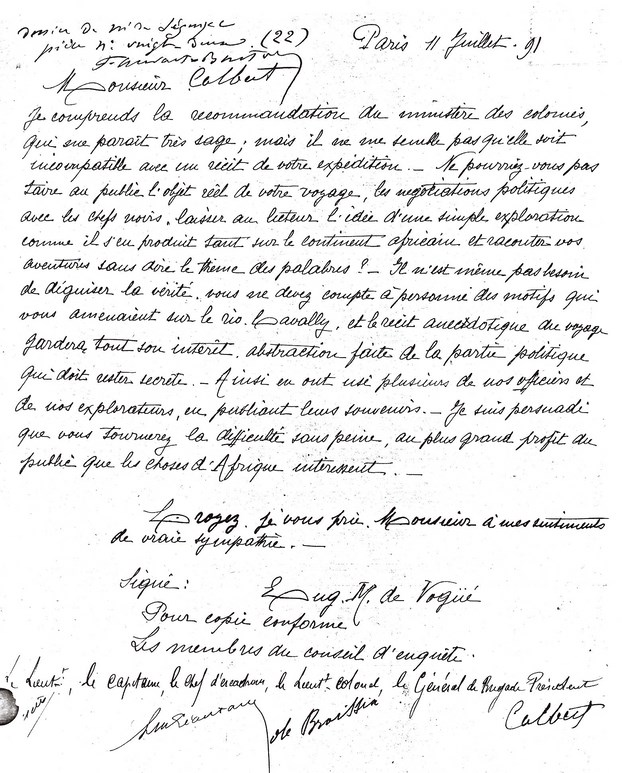 Dossier de
pièce N° vingt deux (22)
Paris 11 Juillet. 91
Monsieur Colbert
Je comprends la recommandation du ministère des colonies,
qui me paraît très sage; mais il ne me semble pas qu'elle soit
incompatible avec un récit de votre expédition. — Ne pourriez-vous pas
taire au public l'objet réel de votre voyage, les négociations politiques
avec les chefs noirs, laisser au lecteur l'idée d'une simple exploration
comme il s'en produit tant sur le continent africain et raconter vos
aventures sans dire le thème des palabres? — Il n'est même pas besoin
de déguiser la vérité, vous ne devez compte à personne des motifs qui
vous amenaient sur le rio. Cavally, et le récit anecdotique du voyage
gardera tout son intérêt, abstraction faite de la partie politique
qui doit rester secrète. — Ainsi en ont usé plusieurs de nos officiers et
de nos explorateurs, en publiant leurs souvenirs. — Je suis persuadé
que vous tournerez la difficulté sans peine, au plus grand profit du
public que les choses d'Afrique intéressent. —
Croyez, je vous prie, Monsieur à mes sentiments
de vraie sympathie. —
Signé: Eug. M. de Vogüé
Pour copie conforme
Les membres du conseil d'enquête.
le Lieut<sup>t</sup>, le capitaine, le chef d'escadron, le Lieut<sup>t</sup> colonel, le Général de Brigade Président
Colbert